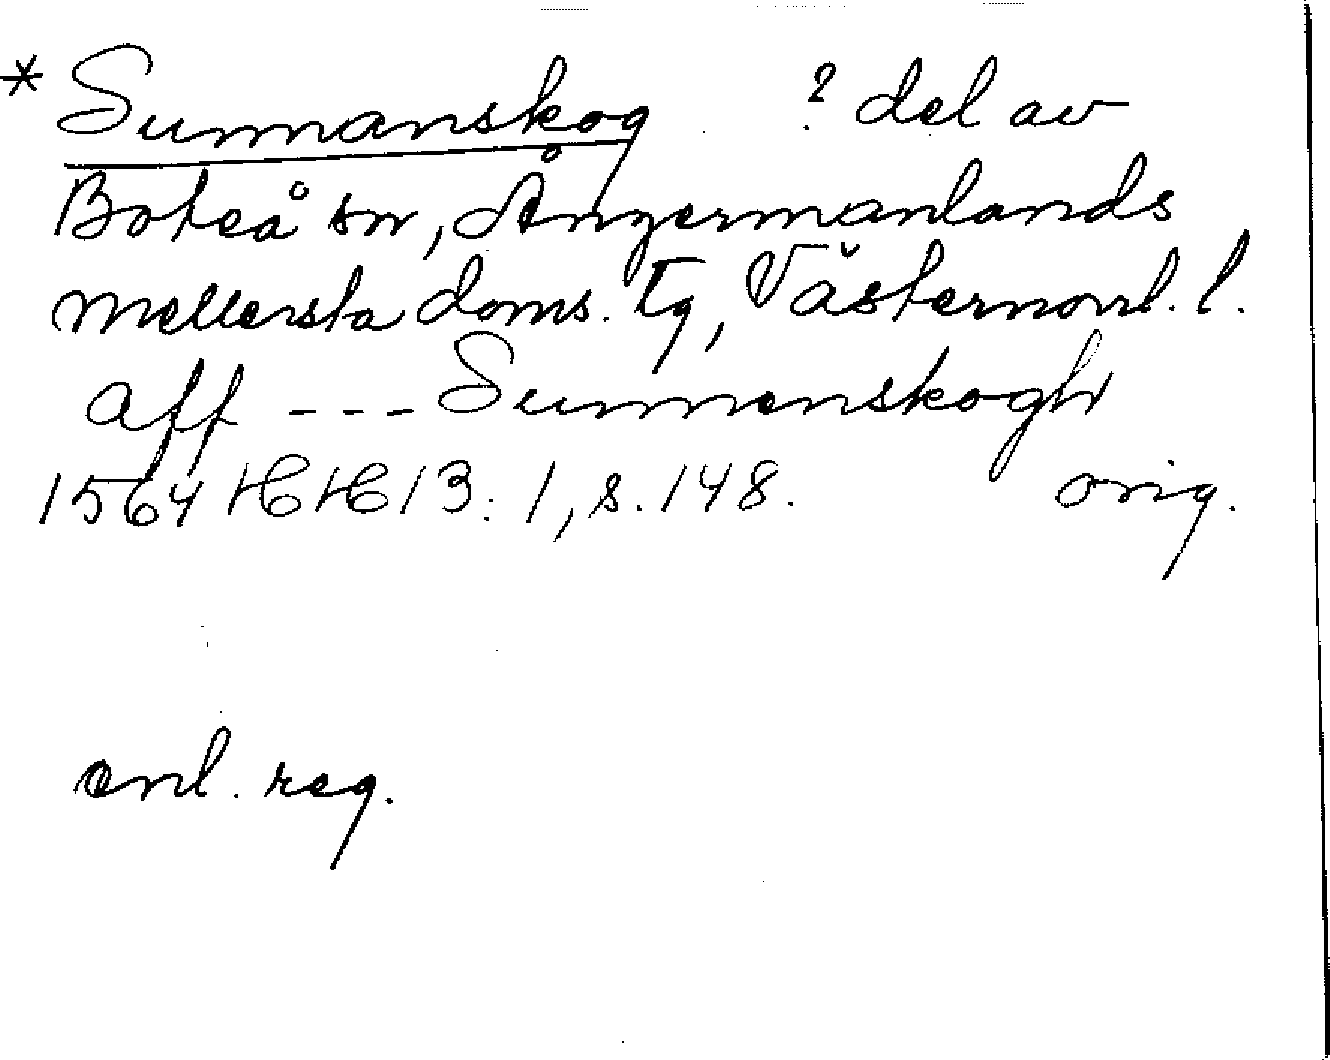 * Sunnanskog ? del av
Boteå sn, Ångermanlands
mellersta doms. tg, Västernorrl. l.
aff --- Sunnanskogh
1564 HH 13:1, s. 148. orig.
enl. reg.